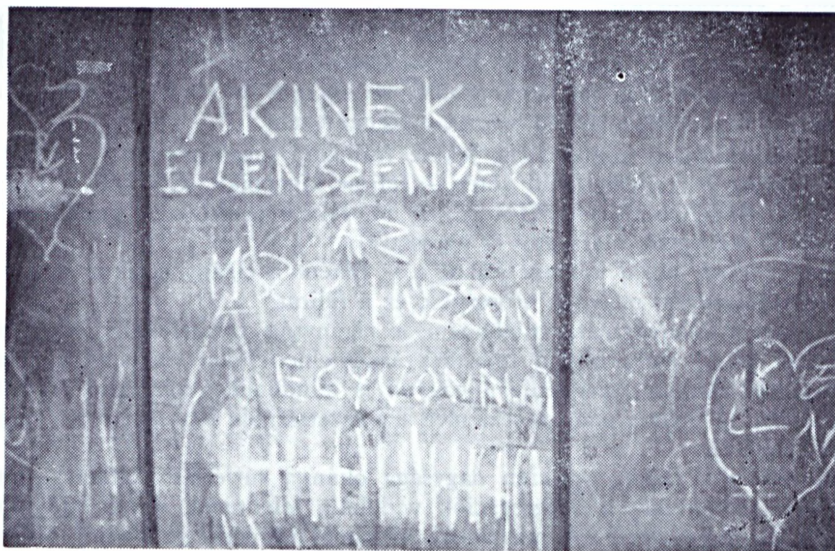 AKINEK
ELLENSZENVES
AZ
MSZP HÚZZON
EGYVONALAT